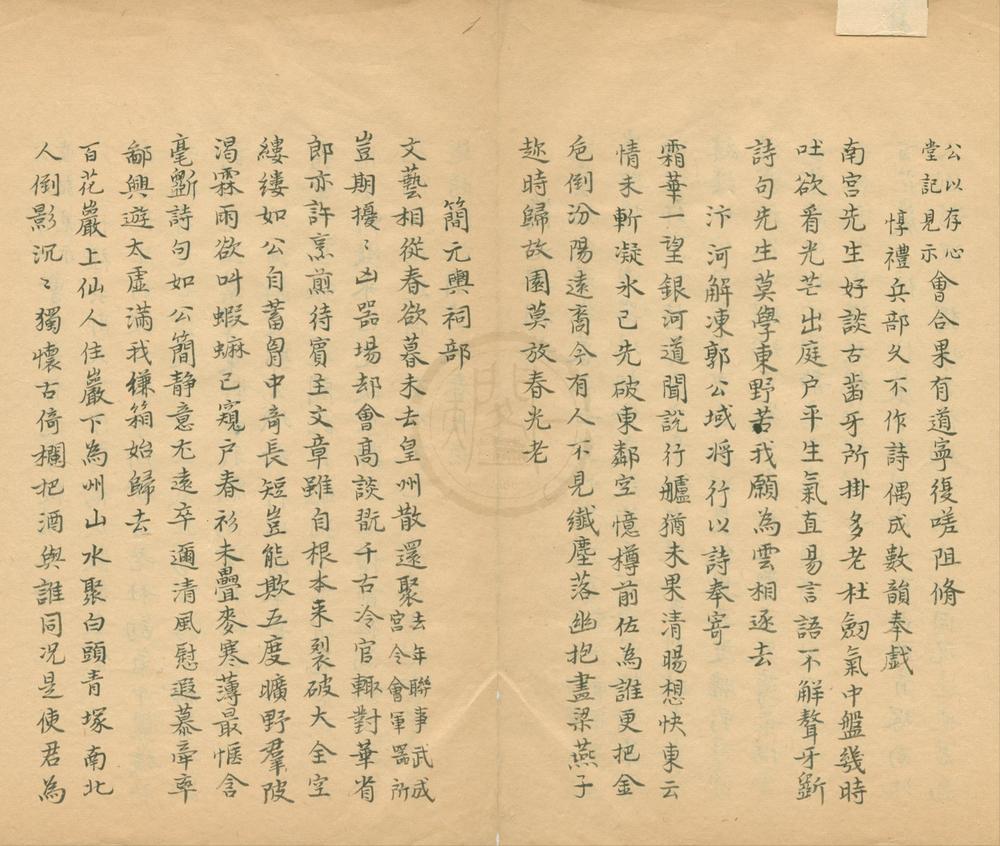 公以存心
堂記見示會合果有道寧復嗟阻脩
惇禮兵部久不作詩偶成數韻奉戲
南宮先生好談古齒牙所掛多老杜劒氣中盤幾時
吐欲看光芒出庭户平生氣直易言語不解聱牙斵
詩句先生莫學東野苦我願為雲相逐去
汴河解凍郭公域将行以詩奉寄
霜華一望銀河道聞說行艫猶未果清暘想快東云
情未斬凝氷已先破東鄰空憶樽前佐為誰更把金
卮倒汾陽遠裔今有人不見纖塵落幽抱盡梁燕子
趂時歸故園莫放春光老
簡元輿祠部
文藝相從春欲暮未去皇州散還聚去年聯事武成
宮今會軍器所
豈期擾〻凶器場却會高談翫千古冷官輙對華省
郎亦許烹煎待賓主文章雖自根本来裂破大全空
縷縷如公自蓄胷中奇長短豈能欺五度曠野羣陂
渴霖雨欲叫蝦蟆已窺户春衫未疊麥寒薄最愜含
毫斵詩句如公簡静意尤遠卒邇清風慰遐慕牽率
鄙興遊太虚滿我縑箱始歸去
百花巖上仙人住巖下為州山水聚白頭青塚南北
人倒影沉〻獨懷古倚欄把酒與誰同况是使君為